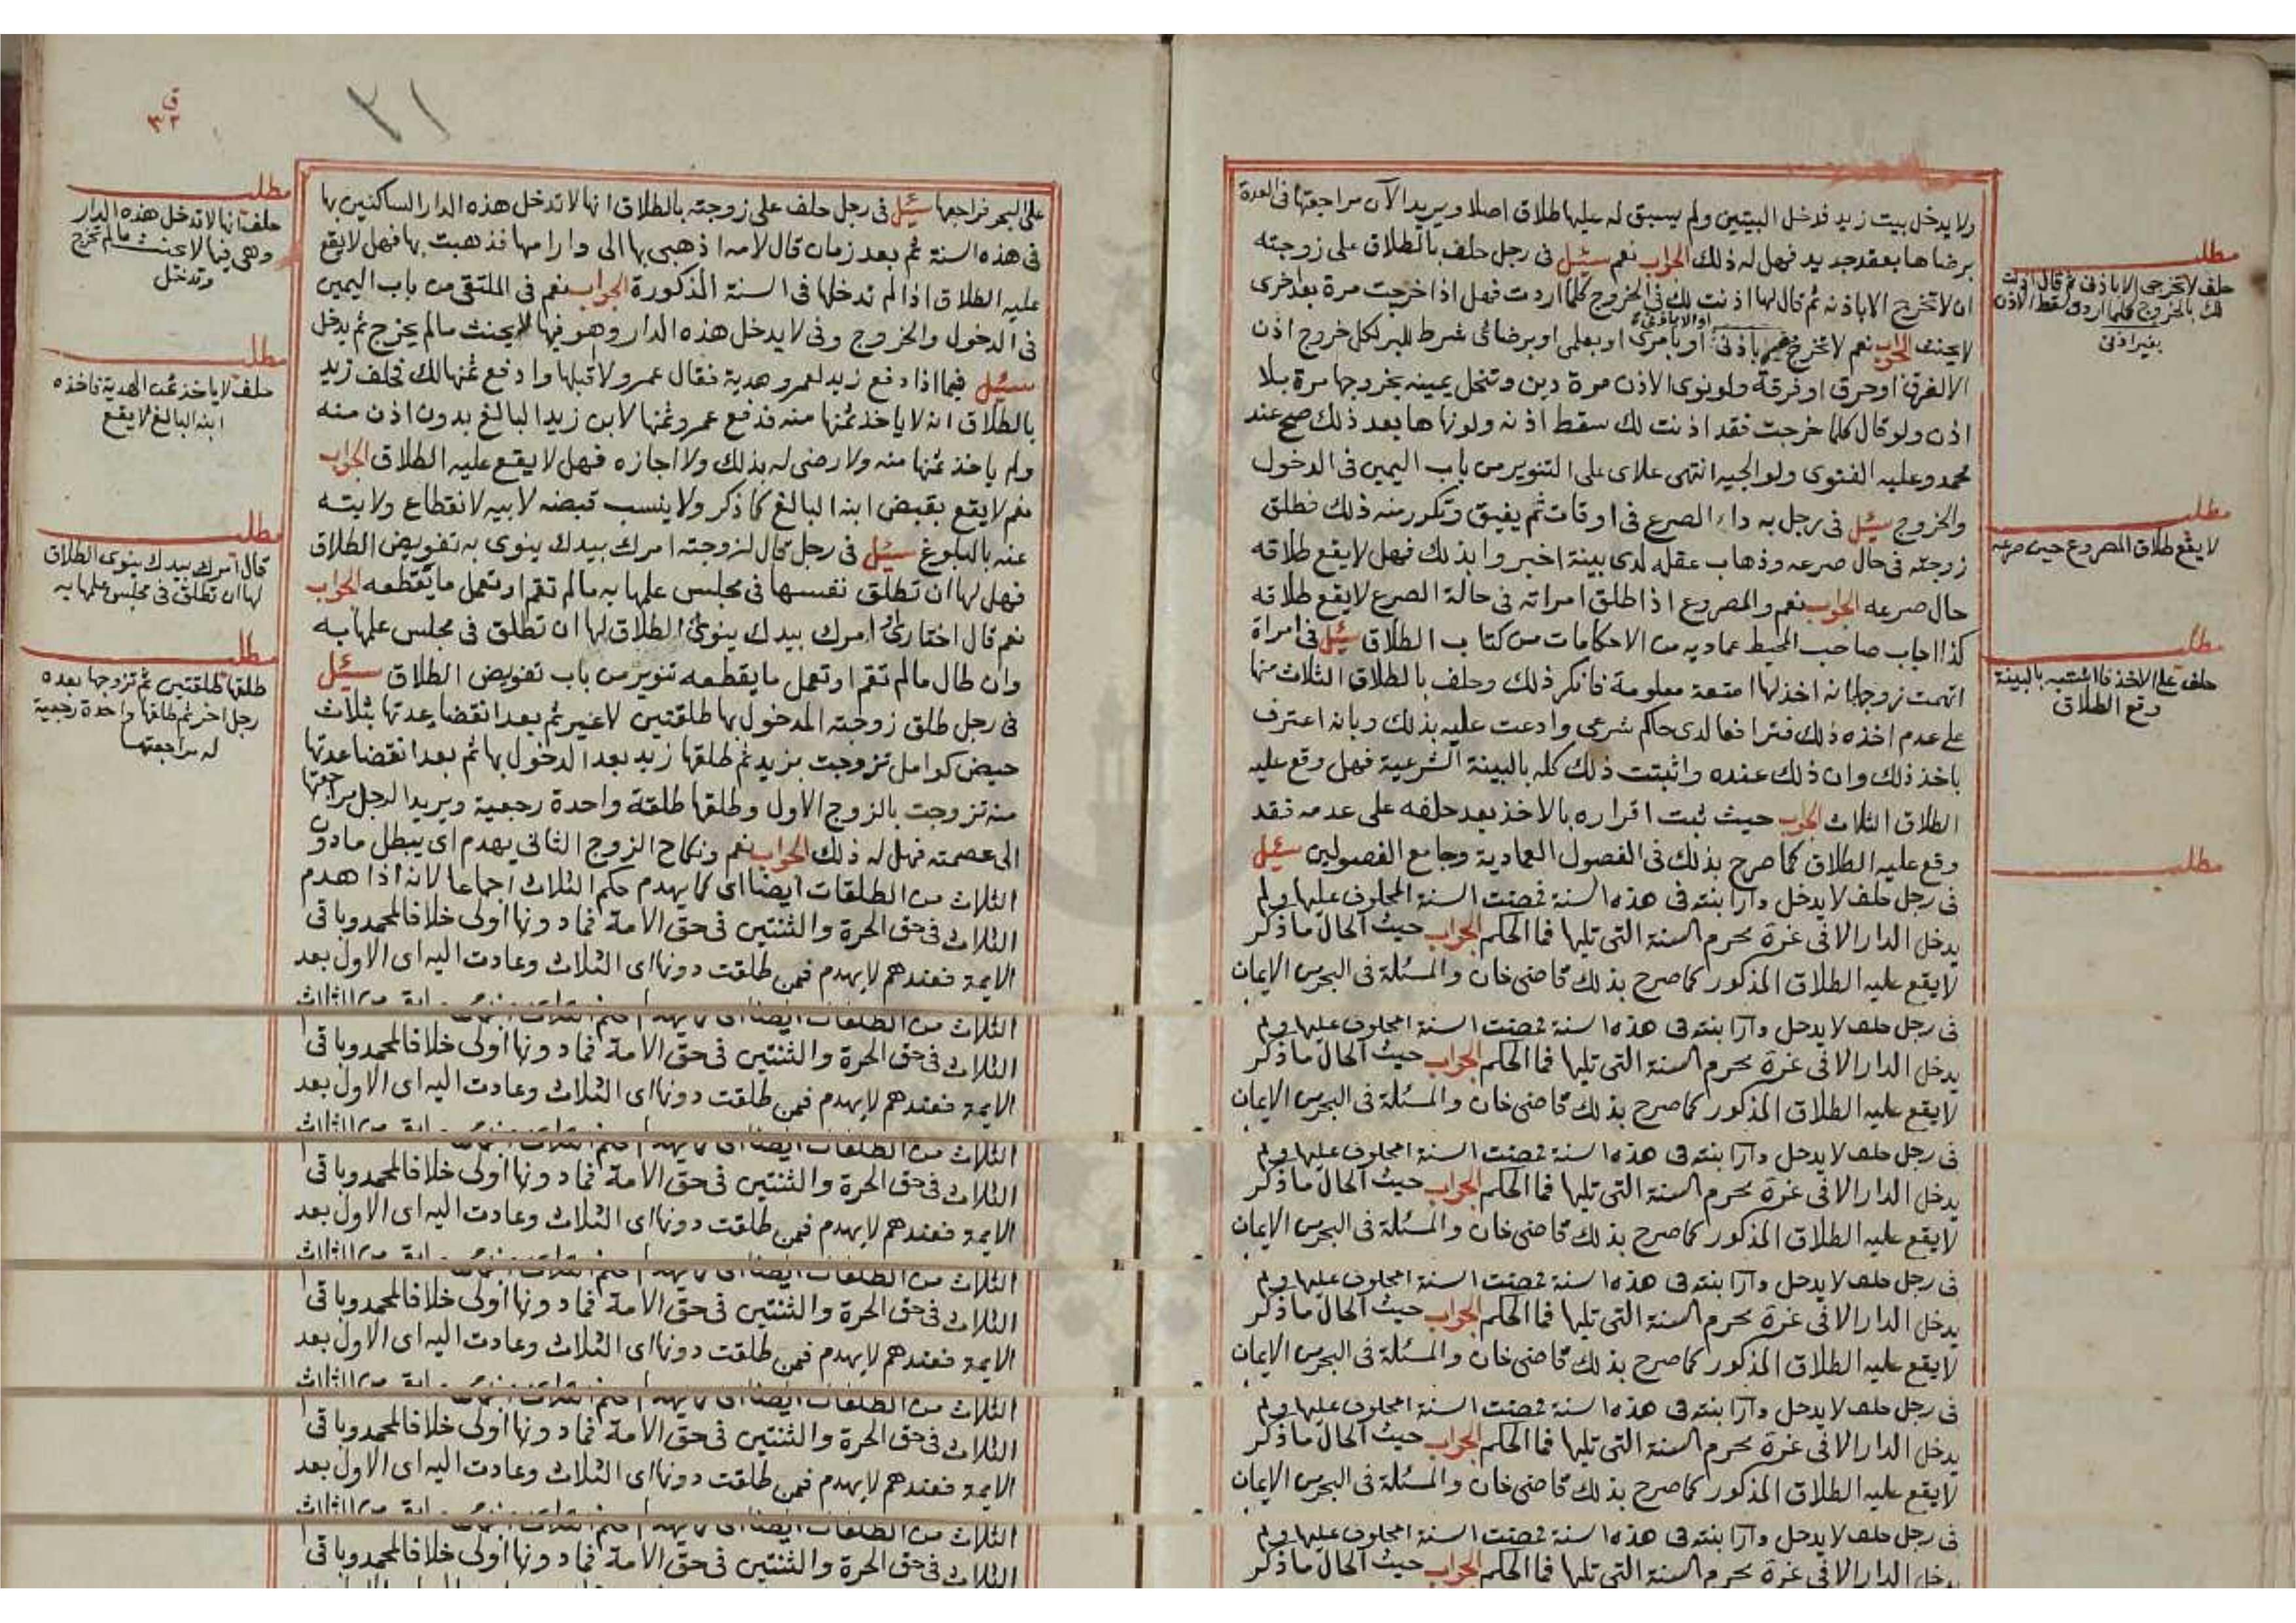 ولا يدخل بيت زيد فدخل البيتين ولم يسبق له عليها طلاق اصلا ويريد الآن مراجعتها في العدة
برضاها بعقد جديد فهل له ذلك الجواب نعم سئل في رجل حلف بالطلاق على زوجته
ان لا تخرج الا باذنه ثم قال لها اذنت لك في الخروج كلما اردت فهل اذا خرجت مرة بعد اخرى
لا يحنث الجواب نعم لا تخرجي بغير اذني او الا باذني او بامري او بعلمي او برضائي شرط للبر لكل خروج اذن
الا لغرق او حرق او فرقة ولو نوى الاذن مرة دين وتنحل يمينه بخروجها مرة بلا
اذن ولو قال كلما خرجت فقد اذنت لك سقط اذنه ولو نهاها بعد ذلك صح عند
محمد وعليه الفتوى ولوالجيه انتهى علاي على التنوير من باب اليمين في الدخول
والخروج سئل في رجل به داء الصرع في اوقات ثم يفيق وتكرر منه ذلك فطلق
زوجته في حال صرعه وذهاب عقله لدى بينة اخبروا بذلك فهل لا يقع طلاقه
حال صرعه الجواب نعم والمصروع اذا طلق امراته في حالة الصرع لا يقع طلاقه
كذا اجاب صاحب المحيط عماديه من الاحكامات من كتاب الطلاق سئل في امراة
اتهمت زوجها انه اخذ لها امتعة معلومة فانكر ذلك وحلف بالطلاق الثلاث منها
على عدم اخذه ذلك فترافعا لدى حاكم شرعي وادعت عليه بذلك وبانه اعترف
باخذ ذلك وان ذلك عنده واثبتت ذلك كله بالبينة الشرعية فهل وقع عليه
الطلاق الثلاث الجواب حيث ثبت اقراره بالاخذ بعد حلفه على عدمه فقد
وقع عليه الطلاق كما صرح بذلك في الفصول العمادية وجامع الفصولين سئل
في رجل حلف لا يدخل دار ابنته في هذه السنة فمضت السنة المحلوف عليها ولم
يدخل الدار الا في غرة محرم السنة التي تليها فما الحكم الجواب حيث الحال ما ذكر
لا يقع عليه الطلاق المذكور كما صرح بذلك قاضي خان والمسئلة في البحر من الايمان
في رجل حلف لا يدخل دار ابنته في هذه السنة فمضت السنة المحلوف عليها ولم
يدخل الدار الا في غرة محرم السنة التي تليها فما الحكم الجواب حيث الحال ما ذكر
لا يقع عليه الطلاق المذكور كما صرح بذلك قاضي خان والمسئلة في البحر من الايمان
في رجل حلف لا يدخل دار ابنته في هذه السنة فمضت السنة المحلوف عليها ولم
يدخل الدار الا في غرة محرم السنة التي تليها فما الحكم الجواب حيث الحال ما ذكر
لا يقع عليه الطلاق المذكور كما صرح بذلك قاضي خان والمسئلة في البحر من الايمان
في رجل حلف لا يدخل دار ابنته في هذه السنة فمضت السنة المحلوف عليها ولم
يدخل الدار الا في غرة محرم السنة التي تليها فما الحكم الجواب حيث الحال ما ذكر
لا يقع عليه الطلاق المذكور كما صرح بذلك قاضي خان والمسئلة في البحر من الايمان
في رجل حلف لا يدخل دار ابنته في هذه السنة فمضت السنة المحلوف عليها ولم
يدخل الدار الا في غرة محرم السنة التي تليها فما الحكم الجواب حيث الحال ما ذكر
لا يقع عليه الطلاق المذكور كما صرح بذلك قاضي خان والمسئلة في البحر من الايمان
في رجل حلف لا يدخل دار ابنته في هذه السنة فمضت السنة المحلوف عليها ولم
يدخل الدار الا في غرة محرم السنة التي تليها فما الحكم الجواب حيث الحال ما ذكر
مطلب
حلف لا تخرجي الا باذني ثم قال اذنت
لك بالخروج كلما اردت سقط الاذن
بغير اذني
مطلب
لا يقع طلاق المصروع حين صرعه
مطلب
حلف على الاخذ فاثبتته بالبينة
وقع الطلاق
مطلب
٣١
على البحر فراجعها سئل في رجل حلف على زوجته بالطلاق انها لا تدخل هذه الدار الساكنين بها
في هذه السنة ثم بعد زمان قال لامه اذهبي بها الى دار امها فذهبت بها فهل لا يقع
عليه الطلاق اذا لم تدخلها في السنة المذكورة الجواب نعم في الملتقى من باب اليمين
في الدخول والخروج وفي لا يدخل هذه الدار وهو فيها لا يحنث ما لم يخرج ثم يدخل
سئل فيما اذا دفع زيد لعمرو هدية فقال عمرو لا اقبلها وادفع ثمنها لك فحلف زيد
بالطلاق انه لا ياخذ ثمنها منه فدفع عمرو ثمنها لابن زيد البالغ بدون اذن منه
ولم ياخذ ثمنها منه ولا رضي له بذلك ولا اجازه فهل لا يقع عليه الطلاق الجواب
نعم لا يقع بقبض ابنه البالغ كما ذكر ولا ينسب قبضه لابيه لانقطاع ولايته
عنه بالبلوغ سئل في رجل قال لزوجته امرك بيدك ينوي به تفويض الطلاق
فهل لها ان تطلق نفسها في مجلس علمها به ما لم تقم او تعمل ما يقطعه الجواب
نعم قال اختاري او امرك بيدك ينوي الطلاق لها ان تطلق في مجلس علمها به
وان طال ما لم تقم او تعمل ما يقطعه تنوير من باب تفويض الطلاق سئل
في رجل طلق زوجته المدخول بها طلقتين لا غير ثم بعد انقضا عدتها بثلاث
حيض كوامل تزوجت بزيد ثم طلقها زيد بعد الدخول بها ثم بعد انقضا عدتها
منه تزوجت بالزوج الاول وطلقها طلقة واحدة رجعية ويريد الرجل مراجعتها
الى عصمته فهل له ذلك الجواب نعم ونكاح الزوج الثاني يهدم اي يبطل ما دون
الثلاث من الطلقات ايضا اي كما يهدم حكم الثلاث اجماعا لانه اذا هدم
الثلاث في حق الحرة والثنتين في حق الامة فما دونها اولى خلافا لمحمد وباقي
الايمة فعندهم لا يهدم فمن طلقت دونها اي الثلاث وعادت اليه اي الاول بعد
الثلاث من الطلقات ايضا
الثلاث في حق الحرة والثنتين في حق الامة فما دونها اولى خلافا لمحمد وباقي
الايمة فعندهم لا يهدم فمن طلقت دونها اي الثلاث وعادت اليه اي الاول بعد
الثلاث من الطلقات ايضا
الثلاث في حق الحرة والثنتين في حق الامة فما دونها اولى خلافا لمحمد وباقي
الايمة فعندهم لا يهدم فمن طلقت دونها اي الثلاث وعادت اليه اي الاول بعد
الثلاث من الطلقات ايضا
الثلاث في حق الحرة والثنتين في حق الامة فما دونها اولى خلافا لمحمد وباقي
الايمة فعندهم لا يهدم فمن طلقت دونها اي الثلاث وعادت اليه اي الاول بعد
الثلاث من الطلقات ايضا
الثلاث في حق الحرة والثنتين في حق الامة فما دونها اولى خلافا لمحمد وباقي
الايمة فعندهم لا يهدم فمن طلقت دونها اي الثلاث وعادت اليه اي الاول بعد
الثلاث من الطلقات ايضا
الثلاث في حق الحرة والثنتين في حق الامة فما دونها اولى خلافا لمحمد وباقي
مطلب
حلف انها لا تدخل هذه الدار
وهي فيها لا يحنث ما لم تخرج
وتدخل
مطلب
حلف لا ياخذ ثمن الهدية فاخذه
ابنه البالغ لا يقع
مطلب
قال امرك بيدك ينوي الطلاق
لها ان تطلق في مجلس علمها به
مطلب
طلقها طلقتين ثم تزوجها بعده
رجل اخر ثم طلقها واحدة رجعية
له مراجعتها